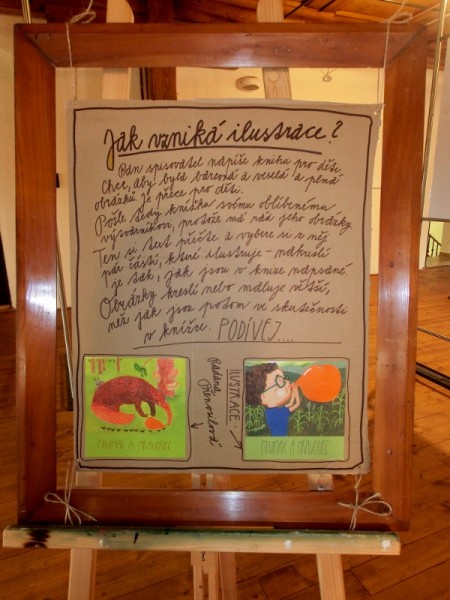 Jak vzniká ilustrace?
Pan spisovatel napíše knihu pro děti.
Chce, aby byla barevná a veselá a plná
obrázků. Je přece pro děti.
Pošle tedy knížku svému oblíbenému
výtvarníkovi, protože má rád jeho obrázky.
Ten si text přečte a vybere si z něj
pár částí, které ilustruje - nakreslí
je tak, jak jsou v knize napsané.
Obrázky kreslí nebo maluje větší,
než jak jsou potom ve skutečnosti
v knížce. PODÍVEJ....
ILUSTRACE
Radana
Přenosilová